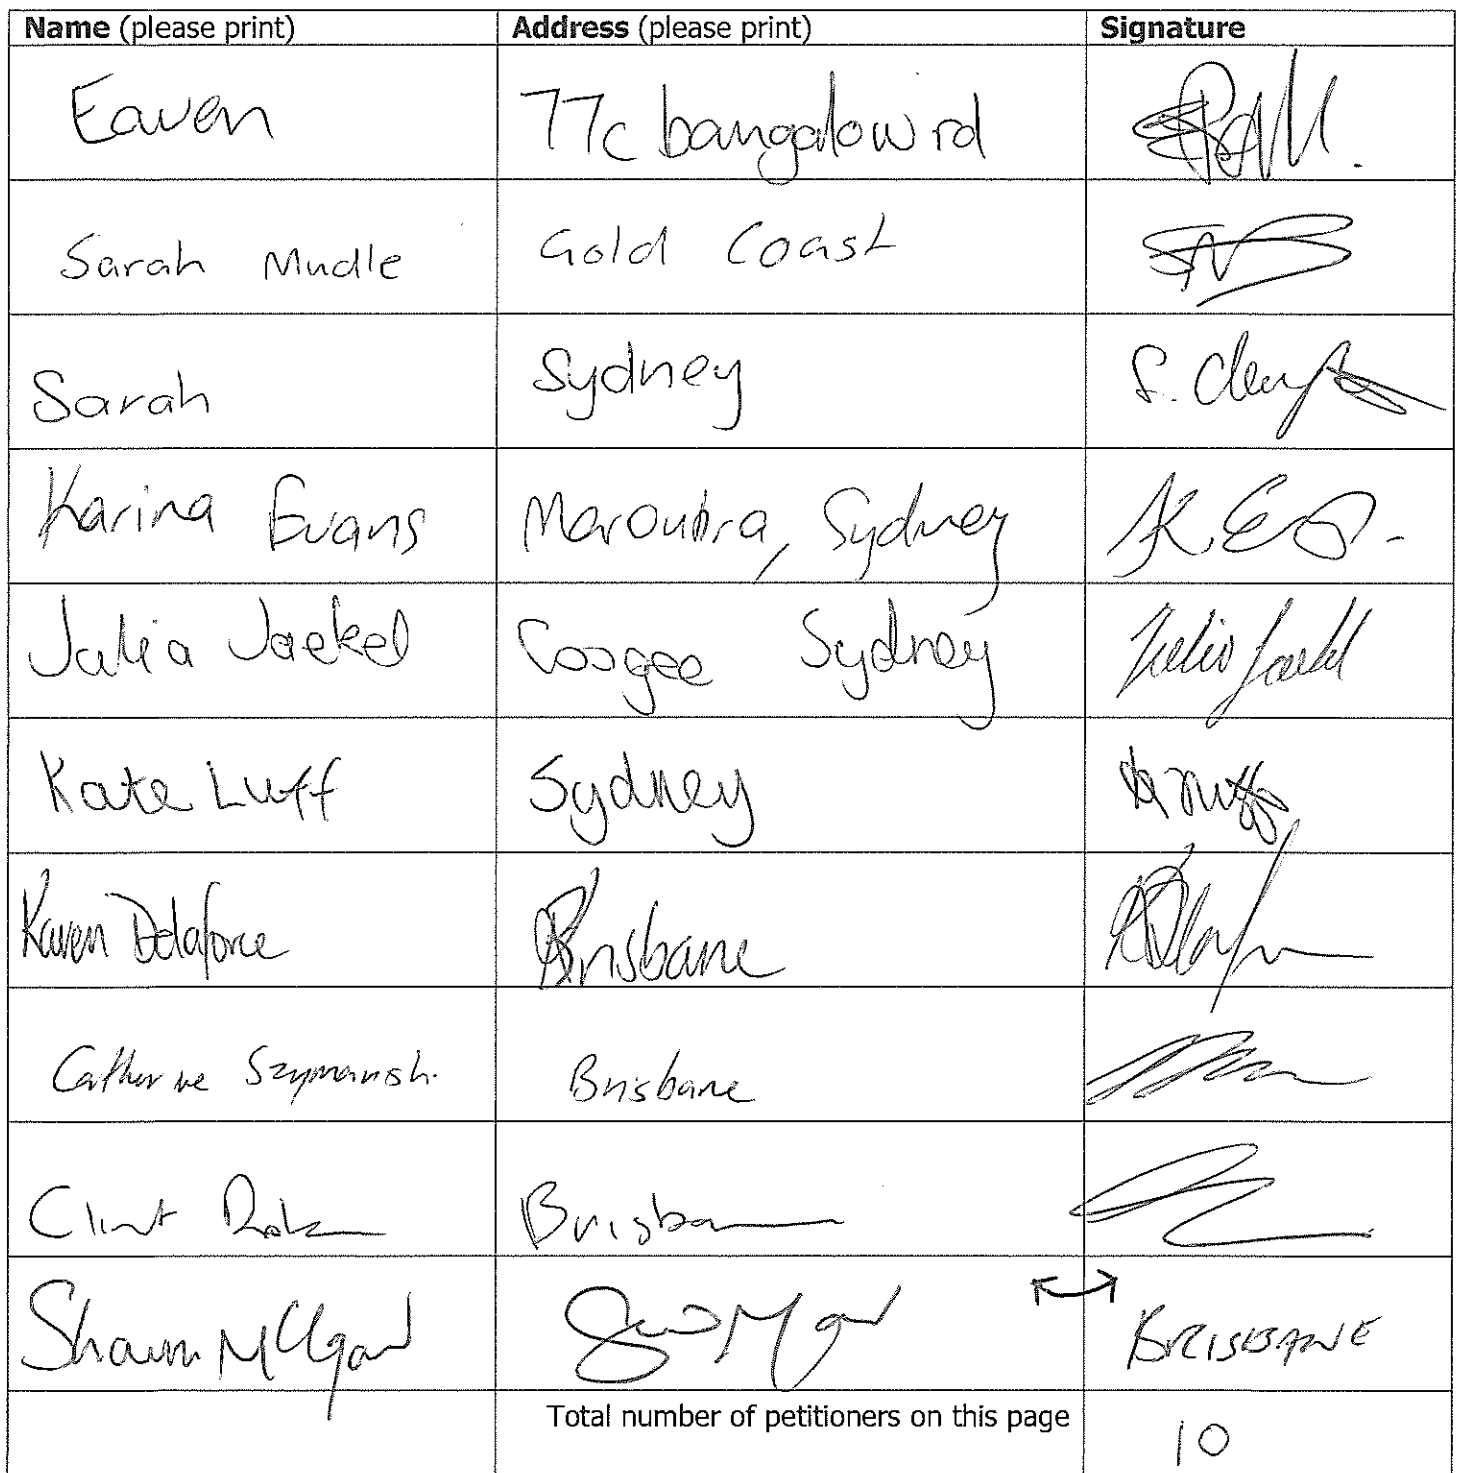 Name (please print) Address (please print) Signature
Eaven 77c bangalow rd
Sarah Mudle Gold Coast
Sarah Sydney S.
Karina Evans Maroubra, Sydney K.E
Julia Jaekel Coogee Sydney Julia Jaekel
Kate Luff Sydney
Karen Delaforce Brisbane
Catherine Brisbane
Clint Brisbane
Shaun BRISBANE
Total number of petitioners on this page 10